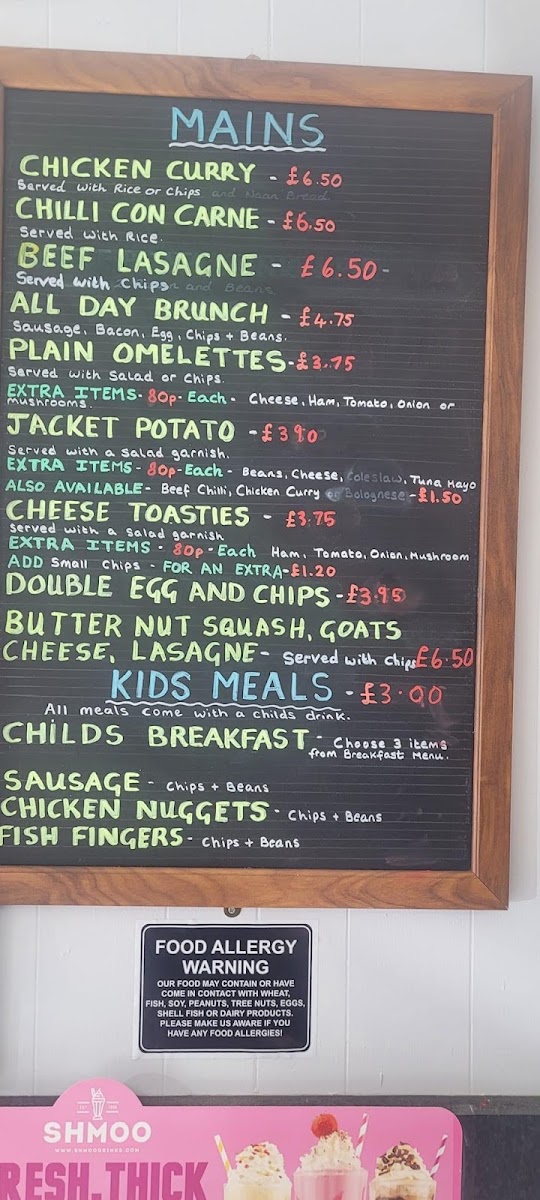 MAINS
CHICKEN CURRY - £6.50
Served with Rice or Chips and Naan Bread
CHILLI CON CARNE - £6.50
Served with Rice.
BEEF LASAGNE - £6.50-
Served with Chips and Beans
ALL DAY BRUNCH - £4.75
Sausage, Bacon, Egg, Chips + Beans.
PLAIN OMELETTES-£3.75
Served with Salad or Chips.
EXTRA ITEMS- 80p- Each- Cheese, Ham, Tomato, Onion or
mushrooms.
JACKET POTATO - £3.90
Served with a Salad garnish.
EXTRA ITEMS- 80p-Each- Beans, Cheese, Coleslaw, Tuna Mayo
ALSO AVAILABLE- Beef Chilli, Chicken Curry or Bolognese -£1.50
CHEESE TOASTIES - £3.75
Served with a Salad garnish
EXTRA ITEMS - 80p-Each Ham, Tomato, Onion, Mushroom
ADD Small Chips - FOR AN EXTRA-£1.20
DOUBLE EGG AND CHIPS-£3.95
BUTTER NUT SQUASH, GOATS
CHEESE, LASAGNE- Served with Chips £6.50
KIDS MEALS - £3.00
All meals come with a childs drink.
CHILDS BREAKFAST - Choose 3 items
from Breakfast Menu.
SAUSAGE - Chips + Beans
CHICKEN NUGGETS - Chips + Beans
FISH FINGERS - Chips + Beans
FOOD ALLERGY
WARNING
OUR FOOD MAY CONTAIN OR HAVE
COME IN CONTACT WITH WHEAT,
FISH, SOY, PEANUTS, TREE NUTS, EGGS,
SHELL FISH OR DAIRY PRODUCTS.
PLEASE MAKE US AWARE IF YOU
HAVE ANY FOOD ALLERGIES!
SHMOO
WWW.SHMOODRINKS.COM
RESH, THICK